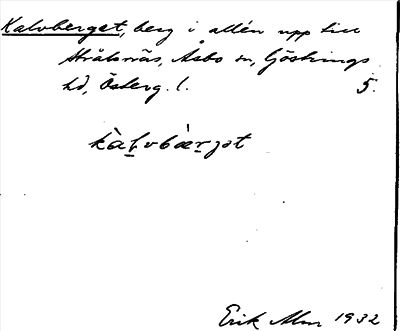 Kalvberget, berg i allén upp till
Strålsnäs, Åsbo sn, Göstrings
hd, Österg. l. 5.
kàl̠vbæ̀r̠jət
Erik Alm 1932